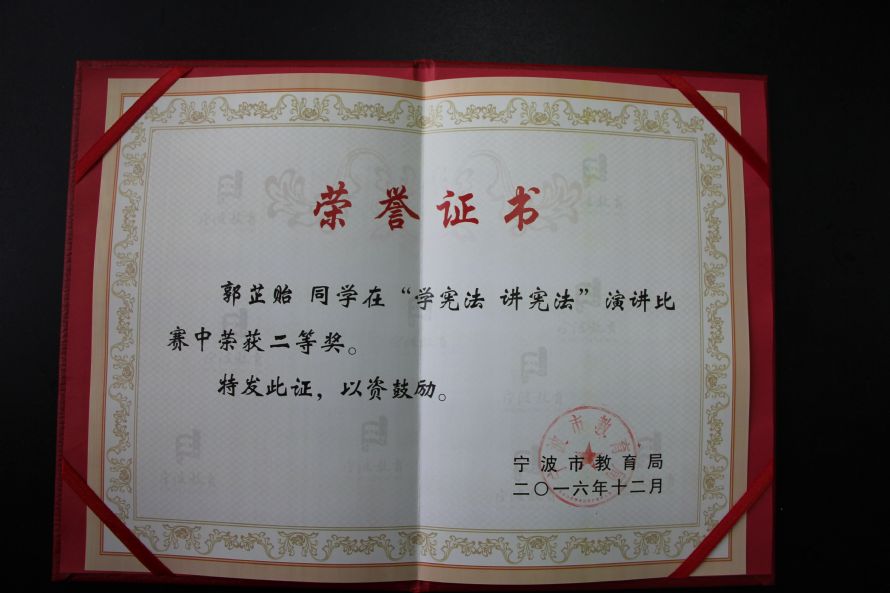 荣誉证书
郭芷贻 同学在“学宪法 讲宪法”演讲比
赛中荣获二等奖。
特发此证，以资鼓励。
宁波市教育局
宁波市教育局
二〇一六年十二月
宁波教育